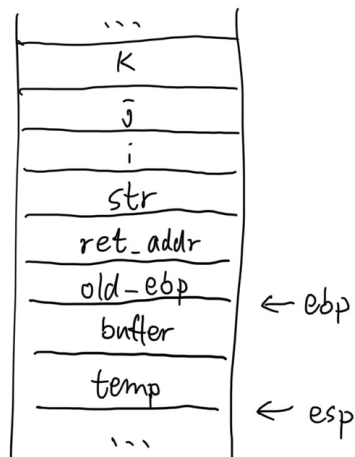 ...
K
j
i
str
ret_addr
old_ebp
← ebp
buffer
temp
← esp
...